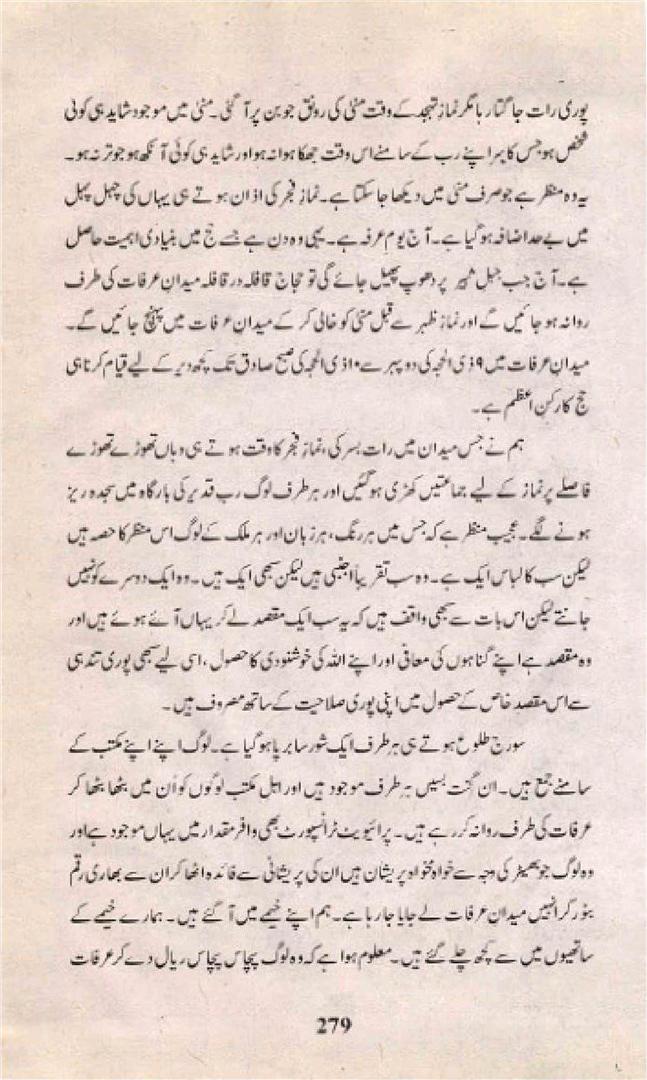 پوری رات جاگتا رہا مگر نمازِ تہجد کے وقت منیٰ کی رونق جوبن پر آ گئی۔ منیٰ میں موجود شاید ہی کوئی
شخص ہو جس کا سر اپنے رب کے سامنے اس وقت جھکا ہوا نہ ہو اور شاید ہی کوئی آنکھ ہو جو تر نہ ہو۔
یہ وہ منظر ہے جو صرف منیٰ میں دیکھا جا سکتا ہے۔ نمازِ فجر کی اذان ہوتے ہی یہاں کی چہل پہل
میں بے حد اضافہ ہو گیا ہے۔ آج یومِ عرفہ ہے۔ یہی وہ دن ہے جسے حج میں بنیادی اہمیت حاصل
ہے۔ آج جب جبل ثبیر پر دھوپ پھیل جائے گی تو حجاج قافلہ در قافلہ میدانِ عرفات کی طرف
روانہ ہو جائیں گے اور نمازِ ظہر سے قبل منیٰ کو خالی کر کے میدانِ عرفات میں پہنچ جائیں گے۔
میدانِ عرفات میں ۹ ذی الحجہ کی دوپہر سے ۱۰ ذی الحجہ کی صبح صادق تک کچھ دیر کے لیے قیام کرنا ہی
حج کا رکنِ اعظم ہے۔
ہم نے جس میدان میں رات بسر کی، نمازِ فجر کا وقت ہوتے ہی وہاں تھوڑے تھوڑے
فاصلے پر نماز کے لیے جماعتیں کھڑی ہو گئیں اور ہر طرف لوگ ربِ قدیر کی بارگاہ میں سجدہ ریز
ہونے لگے۔ عجیب منظر ہے کہ جس میں ہر رنگ، ہر زبان اور ہر ملک کے لوگ اس منظر کا حصہ ہیں
لیکن سب کا لباس ایک ہے۔ وہ سب تقریباً اجنبی ہیں لیکن سبھی ایک ہیں۔ وہ ایک دوسرے کو نہیں
جانتے لیکن اس بات سے سبھی واقف ہیں کہ یہ سب ایک مقصد لے کر یہاں آئے ہوئے ہیں اور
وہ مقصد ہے اپنے گناہوں کی معافی اور اپنے اللہ کی خوشنودی کا حصول، اسی لیے سبھی پوری تندہی
سے اس مقصدِ خاص کے حصول میں اپنی پوری صلاحیت کے ساتھ مصروف ہیں۔
سورج طلوع ہوتے ہی ہر طرف ایک شور سا برپا ہو گیا ہے۔ لوگ اپنے اپنے مکتب کے
سامنے جمع ہیں۔ ان گنت بسیں ہر طرف موجود ہیں اور اہل مکتب لوگوں کو اُن میں بٹھا بٹھا کر
عرفات کی طرف روانہ کر رہے ہیں۔ پرائیویٹ ٹرانسپورٹ بھی وافر مقدار میں یہاں موجود ہے اور
وہ لوگ جو بھیڑ کی وجہ سے خواہ مخواہ پریشان ہیں ان کی پریشانی سے فائدہ اٹھا کر ان سے بھاری رقم
بٹور کر انہیں میدانِ عرفات لے جایا جا رہا ہے۔ ہم اپنے خیمے میں آ گئے ہیں۔ ہمارے خیمے کے
ساتھیوں میں سے کچھ چلے گئے ہیں۔ معلوم ہوا ہے کہ وہ لوگ پچاس پچاس ریال دے کر عرفات
279